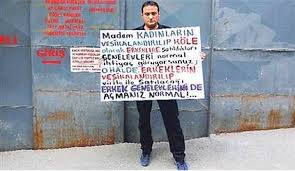 GİRİŞ
Madem KADINLARIN
VESİKALANDIRILIP KÖLE
olarak ERKEKLERE Satıldıkları
GENELEVLERİ normal
ihtiyaç görüyorsunuz
O HALDE ERKEKLERİN
VESİKALANDIRILIP
satılacağı
ERKEK GENELEVLERİNİ DE
AÇMANIZ NORMAL!...